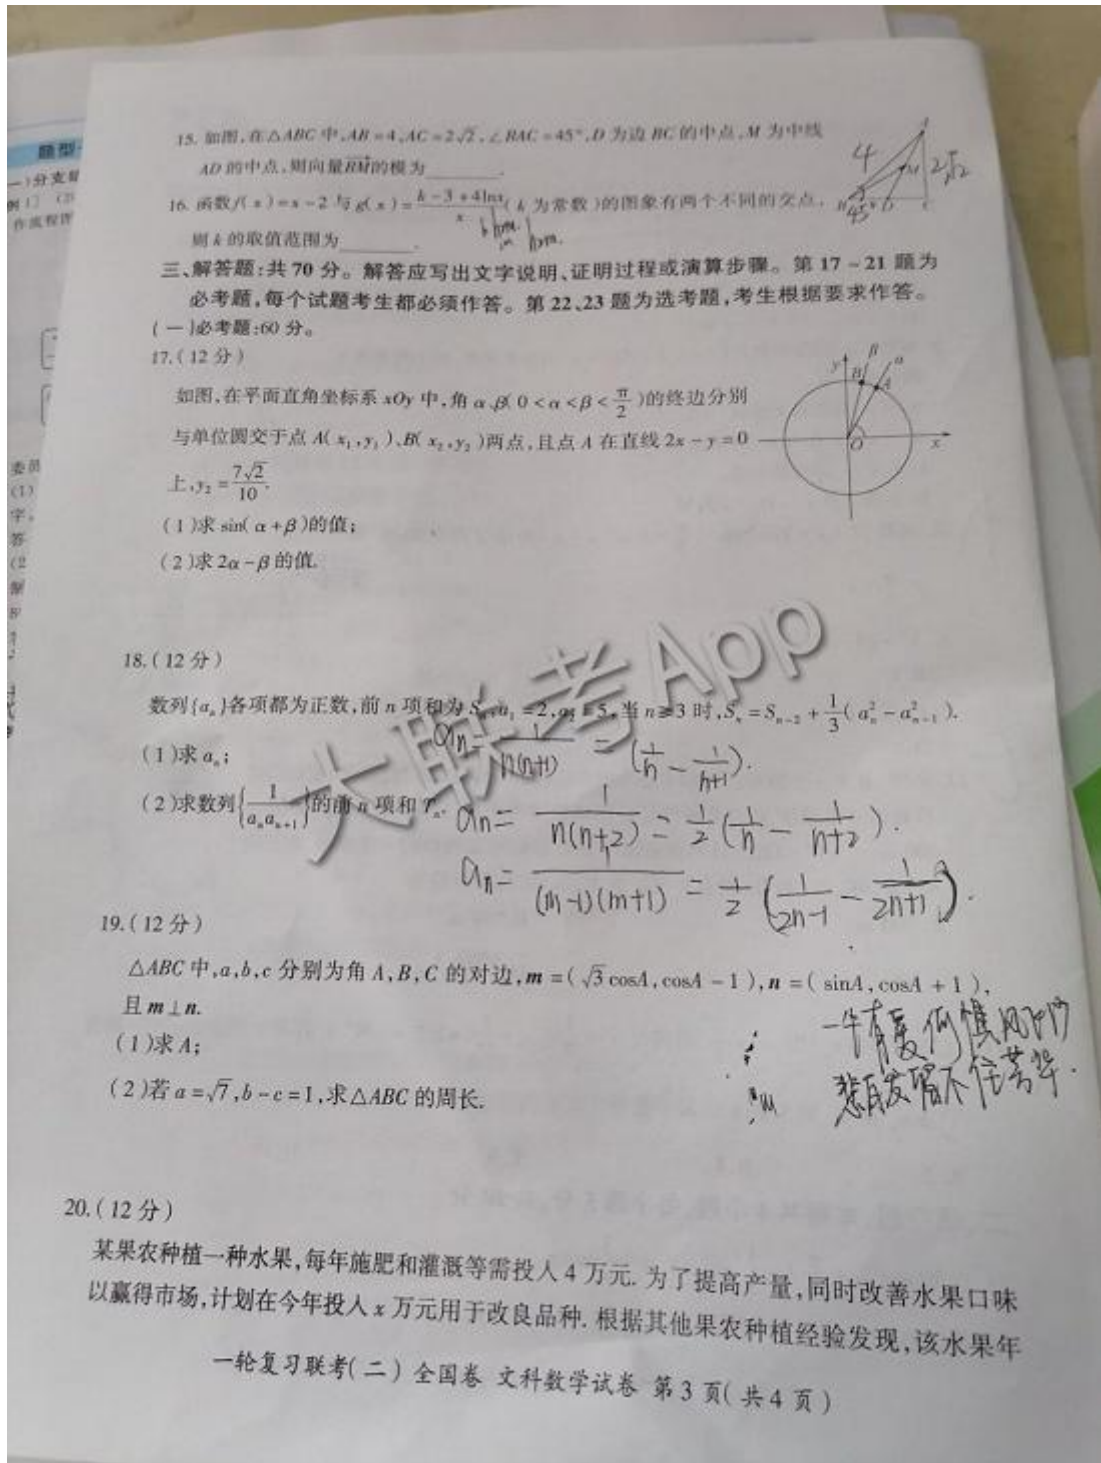 题型
一)分支
例1] (2)
作流程图
15. 如图,在△ABC中,AB=4,AC=2√2,∠BAC=45°,D为边BC的中点,M为中线
AD的中点,则向量BM的模为________.
4
2√2
A
M
B
D
C
45°
16. 函数f(x)=x-2与g(x)=(k-3+4lnx)/x(k为常数)的图象有两个不同的交点,
则k的取值范围为________.
三、解答题:共70分。解答应写出文字说明、证明过程或演算步骤。第17~21题为
必考题,每个试题考生都必须作答。第22、23题为选考题,考生根据要求作答。
(一)必考题:60分。
17.(12分)
如图,在平面直角坐标系xOy中,角α,β(0<α<β<π/2)的终边分别
与单位圆交于点A(x₁,y₁)、B(x₂,y₂)两点,且点A在直线2x-y=0
上,y₂=7√2/10.
y
B
β
α
A
O
x
(1)求sin(α+β)的值;
(2)求2α-β的值.
委员
(1)
字,
答
(2
18.(12分)
数列{aₙ}各项都为正数,前n项和为Sₙ,a₁=2,a₂=5,当n≥3时,Sₙ=Sₙ₋₂+1/3(aₙ²-aₙ₋₁²).
(1)求aₙ;
aₙ=1/(n(n+1))=(1/n-1/(n+1)).
(2)求数列{1/(aₙaₙ₊₁)}的前n项和Tₙ.
aₙ=1/(n(n+2))=1/2(1/n-1/(n+2)).
aₙ=1/((m-1)(m+1))=1/2(1/(2n-1)-1/(2n+1)).
大联考App
19.(12分)
△ABC中,a,b,c分别为角A,B,C的对边,m=(√3cosA,cosA-1),n=(sinA,cosA+1),
且m⊥n.
(1)求A;
(2)若a=√7,b-c=1,求△ABC的周长.
20.(12分)
某果农种植一种水果,每年施肥和灌溉等需投入4万元.为了提高产量,同时改善水果口味
以赢得市场,计划在今年投入x万元用于改良品种.根据其他果农种植经验发现,该水果年
一轮复习联考(二) 全国卷 文科数学试卷 第3页(共4页)